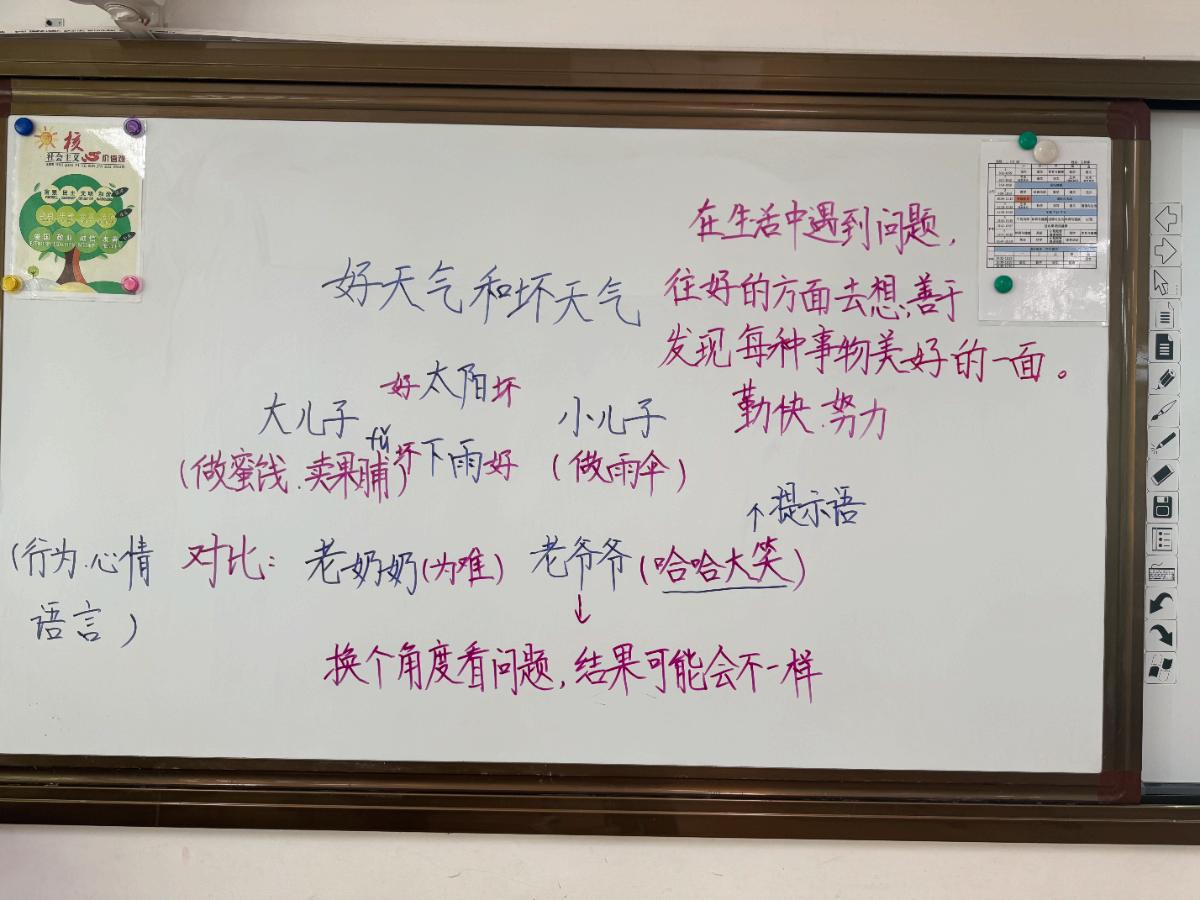 核
社会主义 价值观
富强 民主 文明 和谐
爱国 敬业 诚信 友善
好天气和坏天气
在生活中遇到问题，
往好的方面去想，善于
发现每种事物美好的一面。
勤快.努力
好太阳坏
大儿子
小儿子
fǔ
(做蜜饯.卖果脯)
坏下雨好
(做雨伞)
提示语
(行为.心情
语言)
对比：老奶奶(为难) 老爷爷(哈哈大笑)
↓
换个角度看问题，结果可能会不一样